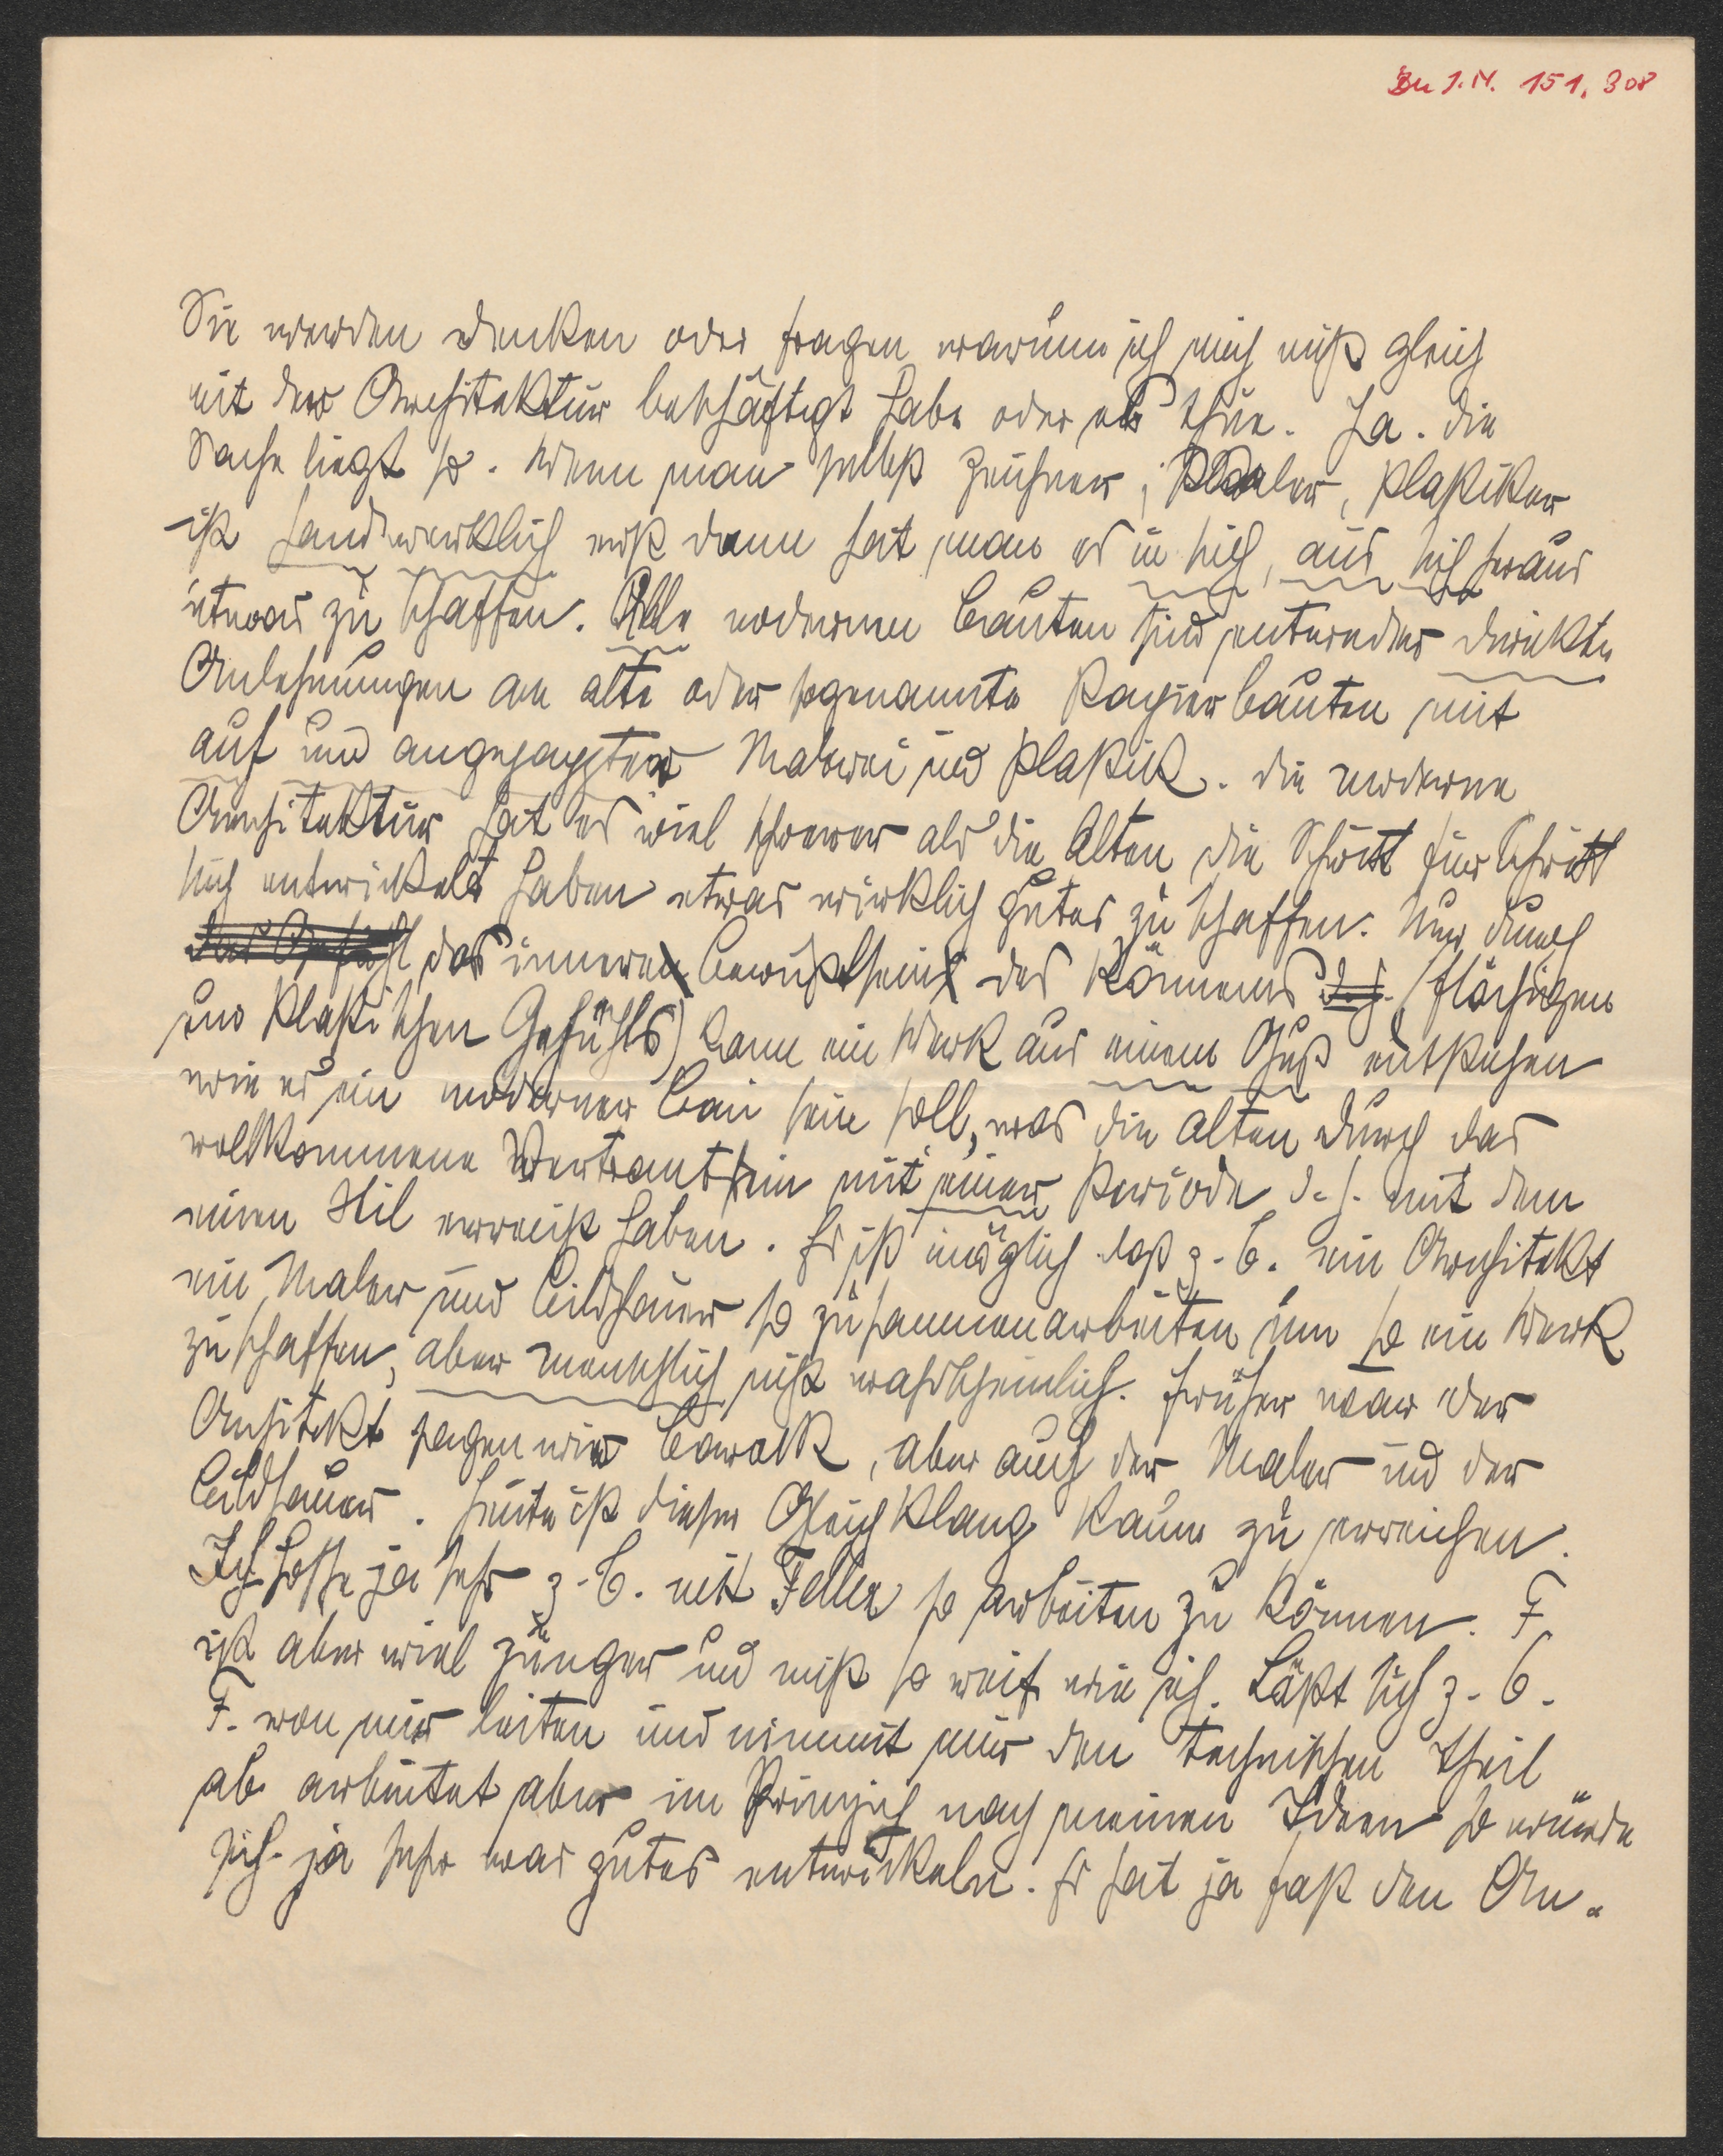 Zu I.N. 151.308
Sie werden denken oder fragen warum ich mich nicht gleich
mit der Architektur beschäftigt habe oder es thue. Ja. die
Sache liegt so. Wenn man selbst Zeichner, Maler, Plastiker
ist handwerklich erst dann hat man es in sich, aus sich heraus
etwas zu schaffen. Alle modernen Bauten sind entweder direkte
Anlehnungen an alte oder sogenannte Papierbauten mit
auf und angepappter Malerei und Plastik. die moderne
Architektur hat es viel schwerer als die Alten die Schritt für Schritt
sich entwickelt haben etwas wirklich gutes zu schaffen. Nur durch
das Gefühl das innere Bewußtsein des Könnens d.h. (flächigen
und plastischen Gefühls) kann ein Werk aus einem Guß entstehen
wie es ein moderner Bau sein soll, was die Alten durch das
vollkommene Vertrautsein mit einer Periode d.h. mit dem
einen Stil erreicht haben. Es ist möglich daß z.B. ein Architekt
ein Maler und Bildhauer so zusammenarbeiten um so ein Werk
zu schaffen, aber menschlich nicht wahrscheinlich. Früher war der
Architekt sagen wir Barock, aber auch der Maler und der
Bildhauer. Heute ist dieser Gleichklang kaum zu erreichen.
Ich hoffe ja sehr z.B. mit Feller so arbeiten zu können. F.
ist aber viel jünger und nicht so weit wie ich. Läßt sich z.B.
F. von mir leiten und nimmt mir den technischen Theil
ab arbeitet aber im Prinzip nach meinen Ideen so würde
sich ja sehr was gutes entwickeln. Er hat ja fast den An-